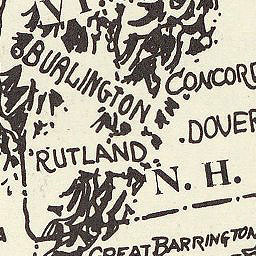 VT
BURLINGTON
CONCORD
.DOVER
RUTLAND
N. H.
GREAT BARRINGTON